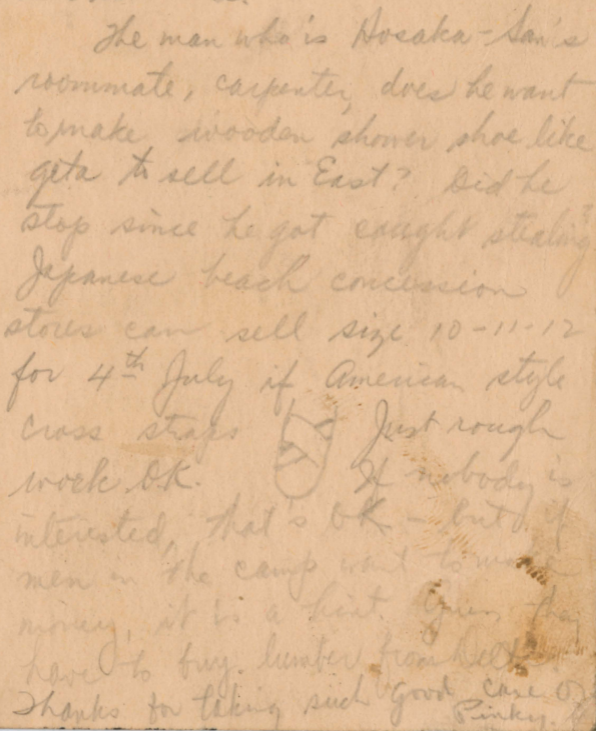 The man who is Hosaka-San's
roommate, carpenter, does he want
to make wooden shower shoe like
geta to sell in East? Did he
stop since he got caught stealing?
Japanese beach concession
stores can sell size 10-11-12
for 4th July if American style
cross straps Just rough
work OK. If nobody is
interested, that's OK - but if
men in the camp want to
money, it is a hint. Guess they
have to buy lumber from
Thanks for taking such good care of
Pinky.